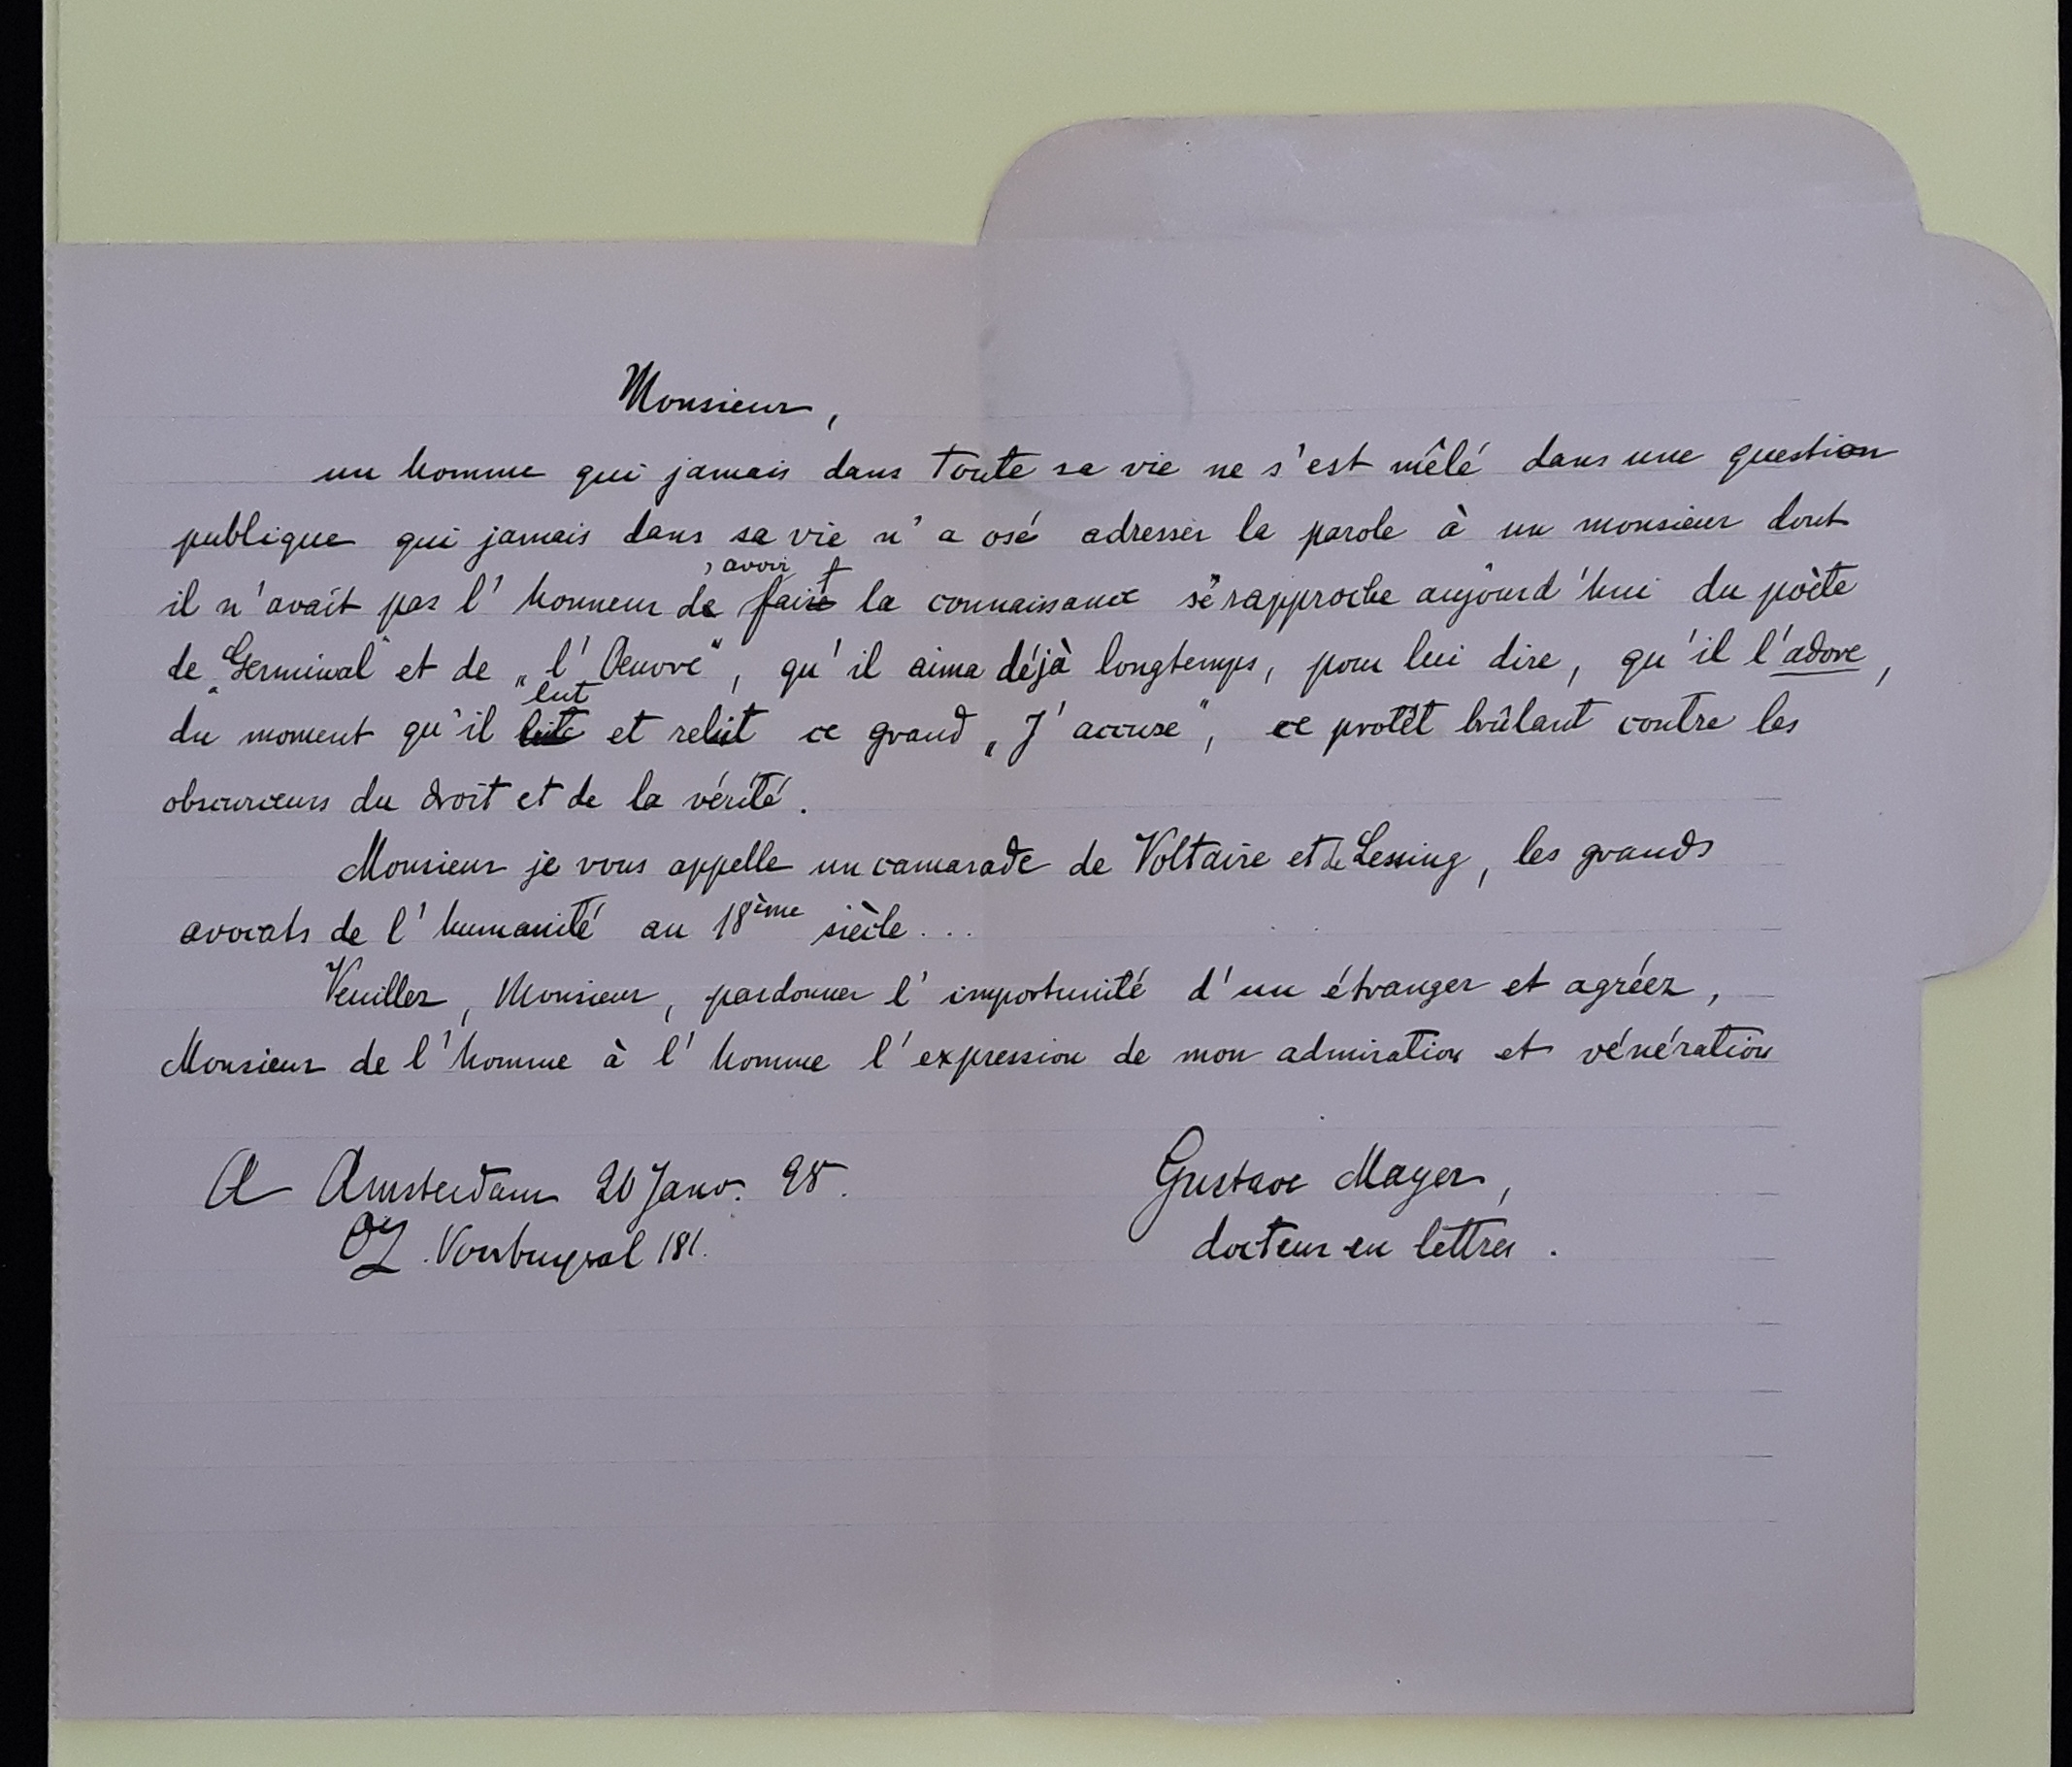 Monsieur,
un homme qui jamais dans toute sa vie ne s'est mêlé dans une question
publique qui jamais dans sa vie n'a osé adresser la parole à un monsieur dont
il n'avait pas l'honneur d'avoir fait la connaissance se rapproche aujourd'hui du poète
de „Germinal" et de „l'Oeuvre", qu'il aima déjà longtemps, pour lui dire, qu'il l'adore,
du moment qu'il lut et relut ce grand „J'accuse", ce protêt brûlant contre les
obscurceurs du droit et de la vérité.
Monsieur je vous appelle un camarade de Voltaire et de Lessing, les grands
avocats de l'humanité au 18ème siècle...
Veuillez, Monsieur, pardonner l'importunité d'un étranger et agréez,
Monsieur de l'homme à l'homme l'expression de mon admiration et vénération
A Amsterdam 20 Janv. 98.
Gustave Mayer,
OZ. Voorburgwal 181.
docteur en lettres.